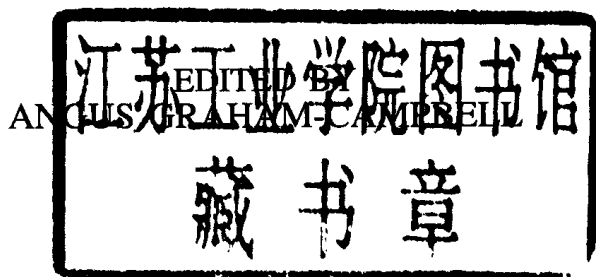 江苏工业学院图书馆
EDITED BY
ANGUS GRAHAM-CAMPBELL
藏书章